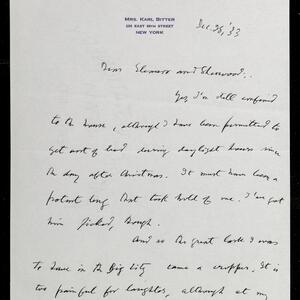 MRS. KARL BITTER
NEW YORK
Dec. 30, '33
Dear Eleanor and Sherwood:
Yes, I'm still confined
to the house, although I have been permitted to
get out of bed during daylight hours since
the day after Christmas. It must have been a
potent bug that took hold of me. I've got
him licked, though.
And so the great time I was
to have in the Big City came a cropper. It is
too painful for laughter, although at my